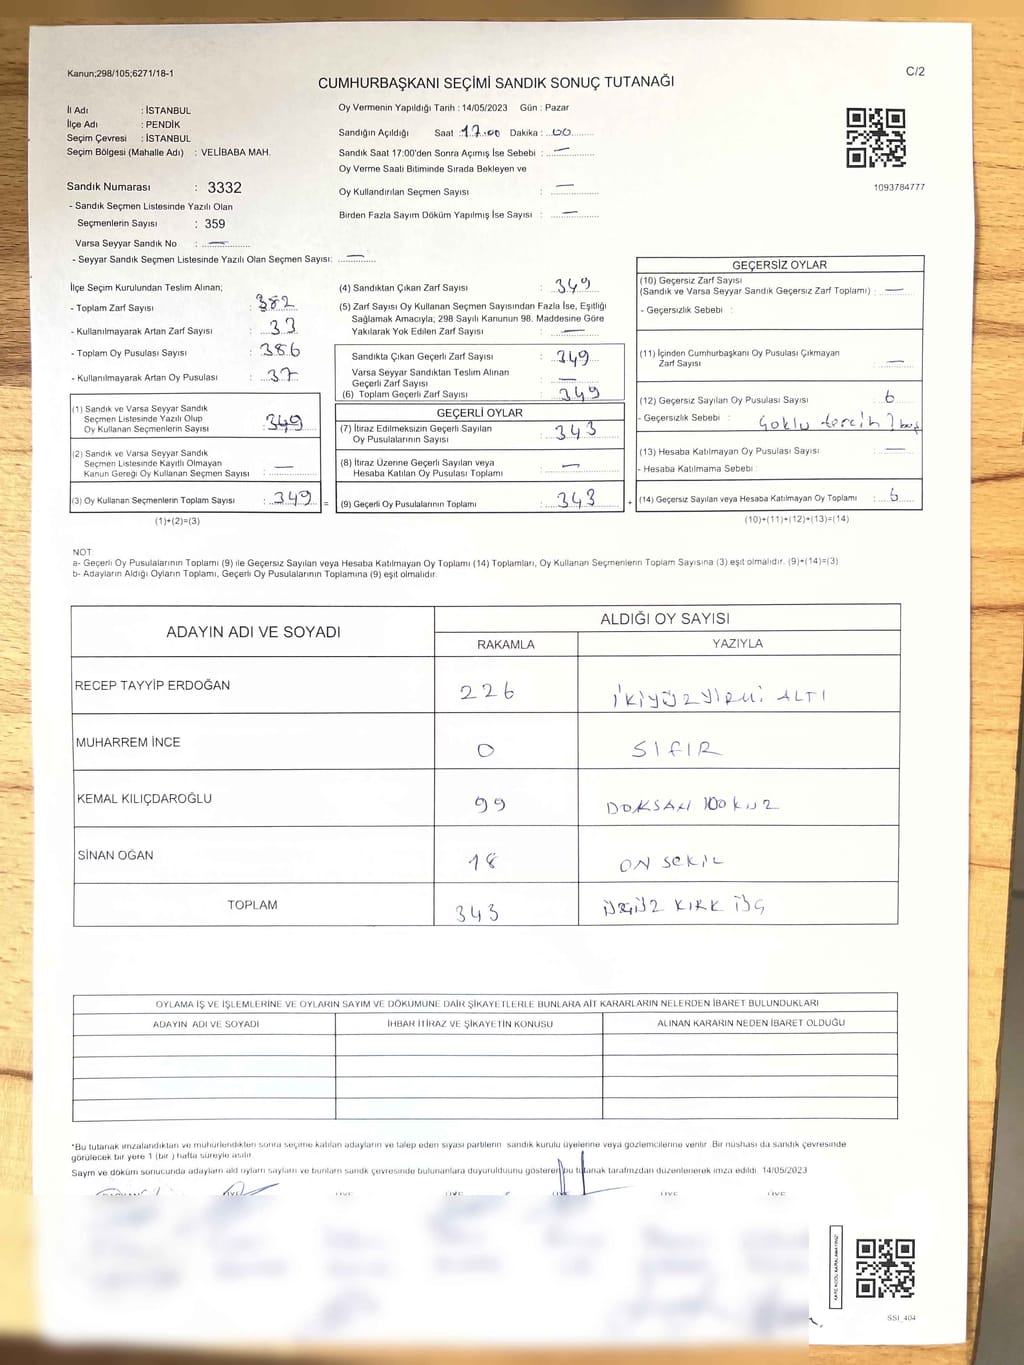 Kanun;298/105;6271/18-1
C/2
CUMHURBAŞKANI SEÇİMİ SANDIK SONUÇ TUTANAĞI
İl Adı : İSTANBUL
İlçe Adı : PENDİK
Seçim Çevresi : İSTANBUL
Seçim Bölgesi (Mahalle Adı) : VELİBABA MAH.
Sandık Numarası : 3332
- Sandık Seçmen Listesinde Yazılı Olan
Seçmenlerin Sayısı : 359
Varsa Seyyar Sandık No : —
- Seyyar Sandık Seçmen Listesinde Yazılı Olan Seçmen Sayısı: —
Oy Vermenin Yapıldığı Tarih : 14/05/2023 Gün : Pazar
Sandığın Açıldığı Saat : 17.00 Dakika : 00
Sandık Saat 17:00'den Sonra Açımış İse Sebebi : —
Oy Verme Saati Bitiminde Sırada Bekleyen ve
Oy Kullandırılan Seçmen Sayısı : —
Birden Fazla Sayım Döküm Yapılmış İse Sayısı : —
1093784777
İlçe Seçim Kurulundan Teslim Alınan;
- Toplam Zarf Sayısı : 382
- Kullanılmayarak Artan Zarf Sayısı : 33
- Toplam Oy Pusulası Sayısı : 386
- Kullanılmayarak Artan Oy Pusulası : 37
(1) Sandık ve Varsa Seyyar Sandık
Seçmen Listesinde Yazılı Olup
Oy Kullanan Seçmenlerin Sayısı : 349
(2) Sandık ve Varsa Seyyar Sandık
Seçmen Listesinde Kayıtlı Olmayan
Kanun Gereği Oy Kullanan Seçmen Sayısı : —
(3) Oy Kullanan Seçmenlerin Toplam Sayısı : 349 =
(1)+(2)=(3)
(4) Sandıktan Çıkan Zarf Sayısı : 349
(5) Zarf Sayısı Oy Kullanan Seçmen Sayısından Fazla İse, Eşitliği
Sağlamak Amacıyla; 298 Sayılı Kanunun 98. Maddesine Göre
Yakılarak Yok Edilen Zarf Sayısı : —
Sandıkta Çıkan Geçerli Zarf Sayısı : 349
Varsa Seyyar Sandıktan Teslim Alınan
Geçerli Zarf Sayısı : —
(6) Toplam Geçerli Zarf Sayısı : 349
GEÇERLİ OYLAR
(7) İtiraz Edilmeksizin Geçerli Sayılan
Oy Pusulalarının Sayısı : 343
(8) İtiraz Üzerine Geçerli Sayılan veya
Hesaba Katılan Oy Pusulası Toplamı : —
(9) Geçerli Oy Pusulalarının Toplamı : 343 +
GEÇERSİZ OYLAR
(10) Geçersiz Zarf Sayısı
(Sandık ve Varsa Seyyar Sandık Geçersiz Zarf Toplamı) : —
- Geçersizlik Sebebi :
(11) İçinden Cumhurbaşkanı Oy Pusulası Çıkmayan
Zarf Sayısı : —
(12) Geçersiz Sayılan Oy Pusulası Sayısı : 6
- Geçersizlik Sebebi : Çoklu tercih
(13) Hesaba Katılmayan Oy Pusulası Sayısı : —
- Hesaba Katılmama Sebebi :
(14) Geçersiz Sayılan veya Hesaba Katılmayan Oy Toplamı : 6
(10)+(11)+(12)+(13)=(14)
NOT:
a- Geçerli Oy Pusulalarının Toplamı (9) ile Geçersiz Sayılan veya Hesaba Katılmayan Oy Toplamı (14) Toplamları, Oy Kullanan Seçmenlerin Toplam Sayısına (3) eşit olmalıdır. (9)+(14)=(3)
b- Adayların Aldığı Oyların Toplamı, Geçerli Oy Pusulalarının Toplamına (9) eşit olmalıdır.
ADAYIN ADI VE SOYADI
ALDIĞI OY SAYISI
RAKAMLA YAZIYLA
RECEP TAYYİP ERDOĞAN 226 İKİYÜZYİRMİ ALTI
MUHARREM İNCE 0 SIFIR
KEMAL KILIÇDAROĞLU 99 DOKSAN DOKUZ
SİNAN OĞAN 18 ON SEKİZ
TOPLAM 343 ÜÇYÜZ KIRK ÜÇ
OYLAMA İŞ VE İŞLEMLERİNE VE OYLARIN SAYIM VE DÖKÜMÜNE DAİR ŞİKAYETLERLE BUNLARA AİT KARARLARIN NELERDEN İBARET BULUNDUKLARI
ADAYIN ADI VE SOYADI İHBAR İTİRAZ VE ŞİKAYETİN KONUSU ALINAN KARARIN NEDEN İBARET OLDUĞU
*Bu tutanak imzalandıktan ve mühürlendikten sonra seçime katılan adayların ve talep eden siyasi partilerin sandık kurulu üyelerine veya gözlemcilerine verilir. Bir nüshası da sandık çevresinde
görülecek bir yere 1 (bir ) hafta süreyle asılır.
Sayım ve döküm sonucunda adayların aldı oyların sayıları ve bunların sandık çevresinde bulunanlara duyurulduunu gösteren bu tutanak tarafımızdan düzenlenerek imza edildi. 14/05/2023
ÜYE ÜYE ÜYE ÜYE ÜYE
KARE KODU KARALAMAYINIZ!
SSI_404